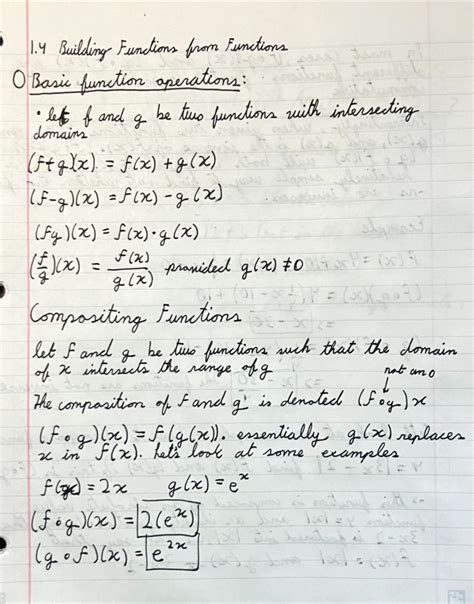 1.4 Building Functions from Functions
Basic function operations:
• let f and g be two functions with intersecting
domains
(f+g)(x) = f(x) + g(x)
(f-g)(x) = f(x) - g(x)
(fg)(x) = f(x)·g(x)
(f/g)(x) = f(x)/g(x) provided g(x) ≠ 0
Compositing Functions
let f and g be two functions such that the domain
of x intersects the range of g
not an o
The composition of f and g is denoted (f∘g)x
(f∘g)(x) = f(g(x)). essentially g(x) replaces
x in f(x). let's look at some examples
f(x) = 2x g(x) = eˣ
(f∘g)(x) = 2(eˣ)
(g∘f)(x) = e²ˣ